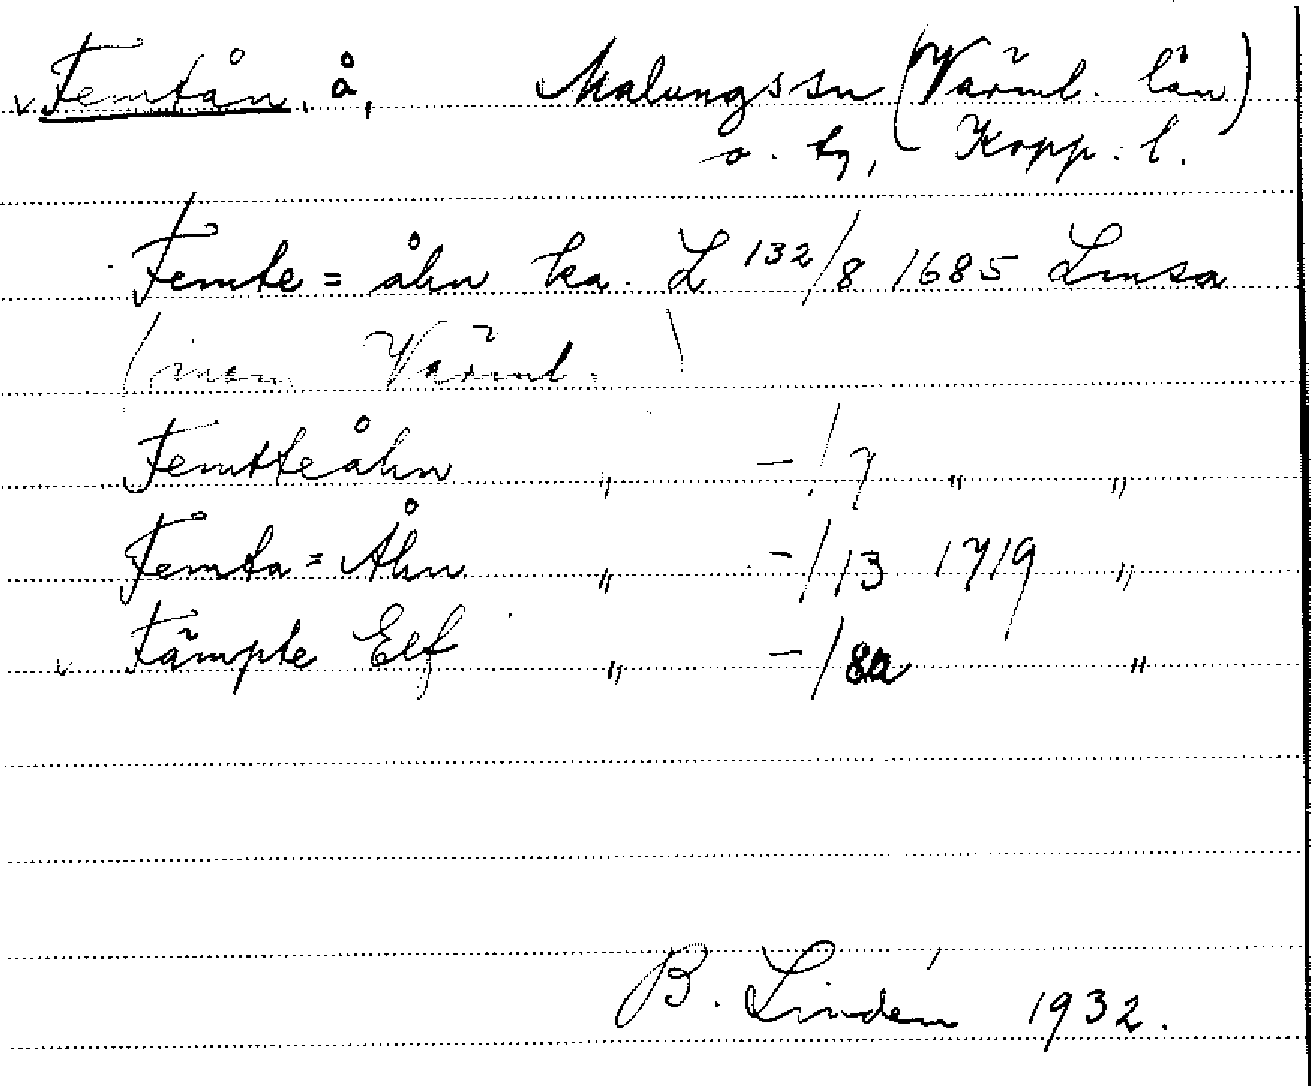 v Femtån, å, Malungs sn (Värml. län)
o. hd, Kopp. l.
Femte=åhn ka. L 132/8 1685 Lmsa
(inom Värml.)
Femtteåhn " -/7 " "
Femta=Åhn " -/13 1719 "
v Fämpte Elf " -/8a "
B. Lindén 1932.